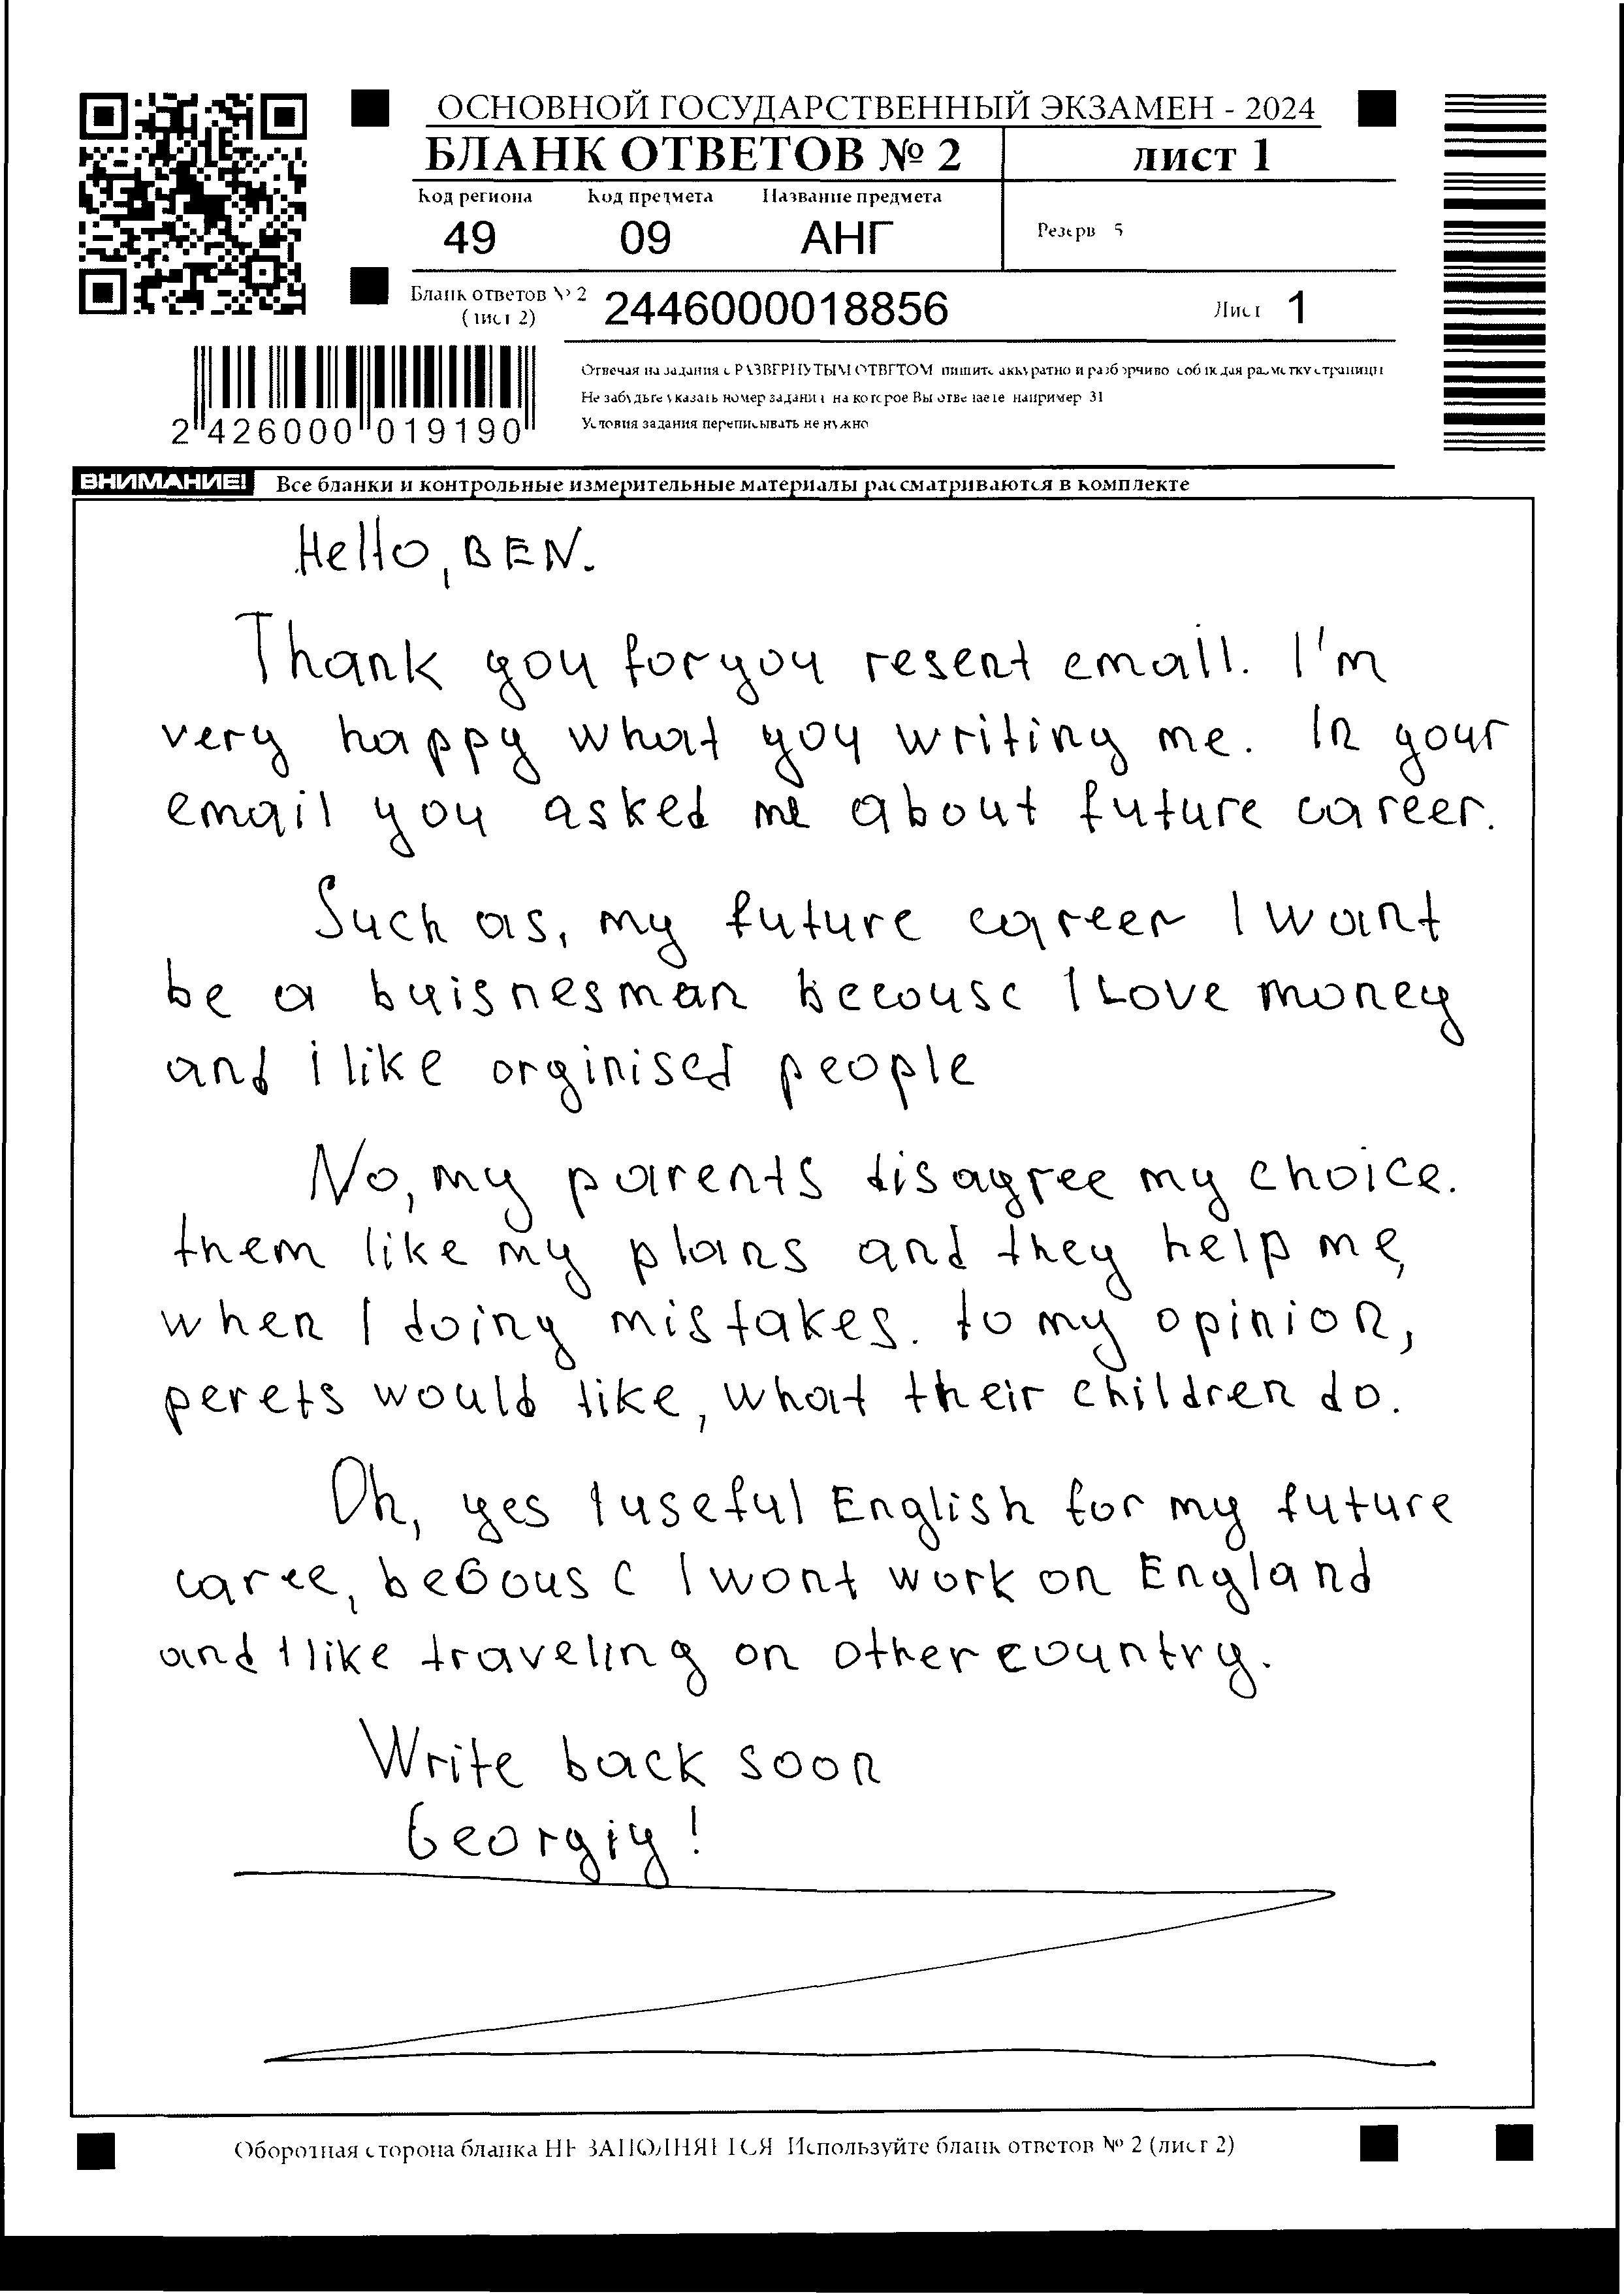 ОСНОВНОЙ ГОСУДАРСТВЕННЫЙ ЭКЗАМЕН - 2024
БЛАНК ОТВЕТОВ № 2 лист 1
Код региона Код предмета Название предмета
49 09 АНГ
Резерв 5
Бланк ответов № 2
(лист 2)
2446000018856
Лист 1
Отвечая на задания с РАЗВЕРНУТЫМ ОТВЕТОМ пишите аккуратно и разборчиво соблюдая разметку страницы
Не забудьте указать номер задания на которое Вы отвечаете например 31
Условия задания переписывать не нужно
2 426000 019190
ВНИМАНИЕ! Все бланки и контрольные измерительные материалы рассматриваются в комплекте
Hello, BEN.
Thank you for you resent email. I'm
very happy what you writing me. In your
email you asked me about future career.
Such as, my future career I want
be a buisnesman becouse I Love money
and i like orginised people
No, my parents disagree my choice.
them like my plans and they help me,
when I doing mistakes. to my opinion,
perets would like, what their children do.
Oh, yes I useful English for my future
caree, becouse I wont work on England
and I like traveling on other country.
Write back soon
Georgiy!
Оборотная сторона бланка НЕ ЗАПОЛНЯЕТСЯ Используйте бланк ответов № 2 (лист 2)